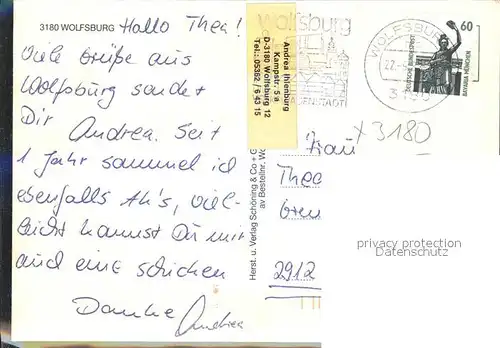 3180 WOLFSBURG Hallo Thea!
Viele Grüße aus
Wolfsburg sendet
Dir Andrea. Seit
1 Jahr sammel ich
ebenfalls Ak's, viel-
leicht kannst Du mir
auch eine schicken
Danke Andrea
Andrea Ihlenburg
Kampstr. 5 a
D-3180 Wolfsburg 12
Tel.: 05362 / 6 43 15
Wolfsburg
WOLFSBURG
22.
60
DEUTSCHE BUNDESPOST
BAVARIA MÜNCHEN
x 3180
Frau
Thea
2912
Herst. u. Verlag Schöning & Co + G
av Bestellnr. Wo
privacy protection
Datenschutz